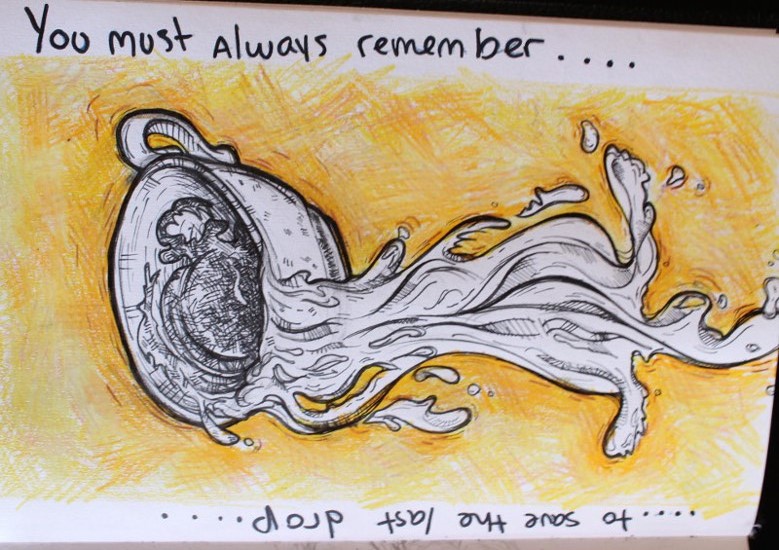 You must Always remember....
....to save the last drop.....